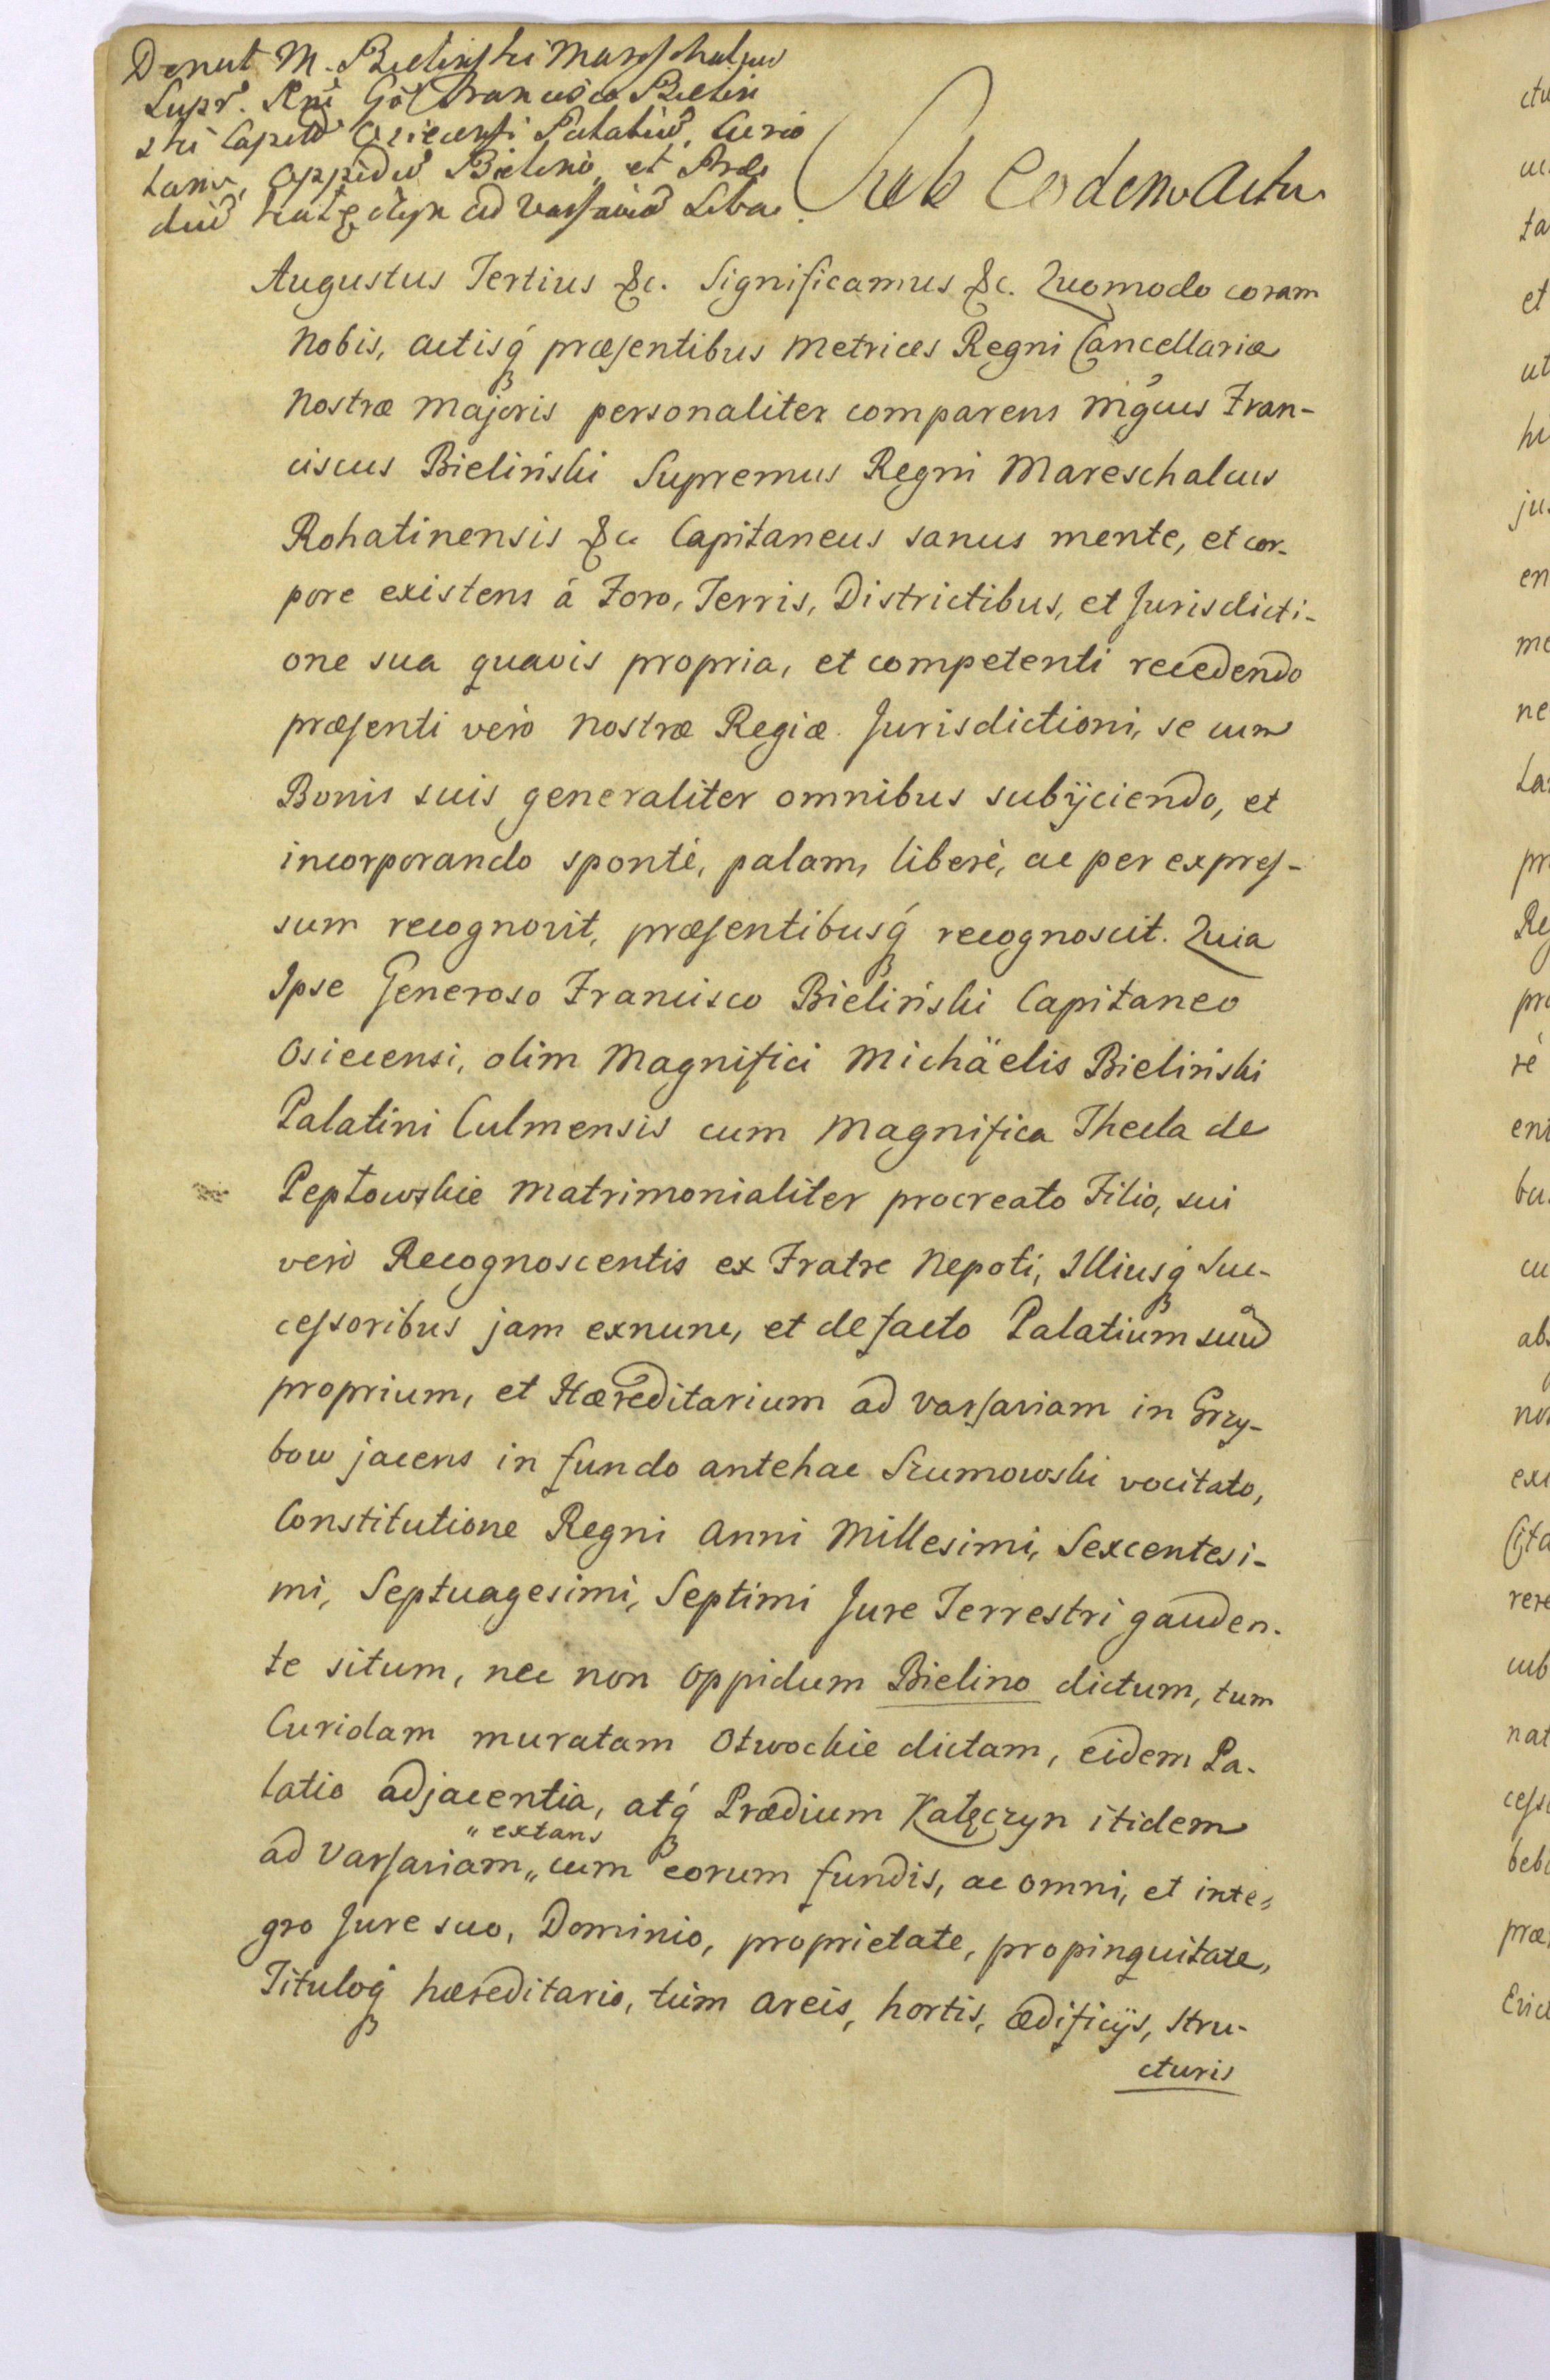 Donat M. Bielinski Marschalcus
Supr. Rni Gōso Francisco Bielin
ski Capeo Osiecensi Palatiū, Curio
lam, oppidū Bielino, et Præ
diū Kałęczyn ad Varsaviā Sita.
Sub Eodem Actu
Augustus Tertius &c. Significamus &c. Quomodo coram
Nobis, actisq́ præsentibus Metrices Regni Cancellariæ
Nostræ Majoris personaliter comparens Mgcus Fran-
ciscus Bieliński Supremus Regni Mareschalcus
Rohatinensis &c Capitaneus sanus mente, et cor-
pore existens á Foro, Terris, Districtibus, et Jurisdicti-
one sua quavis propria, et competenti recedendo
præsenti verò Nostræ Regiæ Jurisdictioni, se cum
Bonis suis generaliter omnibus subijciendo, et
incorporando spontè, palam, liberè, ac per expres-
sum recognovit, præsentibusq́ recognoscit. Quia
Ipse Generoso Francisco Bieliński Capitaneo
Osiecensi, olim Magnifici Michäelis Bieliński
Palatini Culmensis cum Magnifica Thecla de
Pepłowskie matrimonialiter procreato Filio, sui
verò Recognoscentis ex Fratre Nepoti, Illiusq́ Suc-
cessoribus jam exnunc, et defacto Palatium suū
proprium, et Hæreditarium ad Varsaviam in Grzy-
bow jacens in fundo antehac Szumowski vocitato,
Constitutione Regni Anni Millesimi, Sexcentesi-
mi, Septuagesimi, Septimi Jure Terrestri gauden-
te situm, nec non Oppidum Bielino dictum, tum
Curiolam muratam Otwockie dictam, eidem Pa-
latio adjacentia, atq́ Prædium Kałęczyn itidem
" extans
ad Varsaviam „ cum eorum fundis, ac omni, et inte-
gro Jure suo, Dominio, proprietate, propinquitate,
Tituloq́ hæreditario, tùm areis, hortis, ædificijs, stru-
cturis